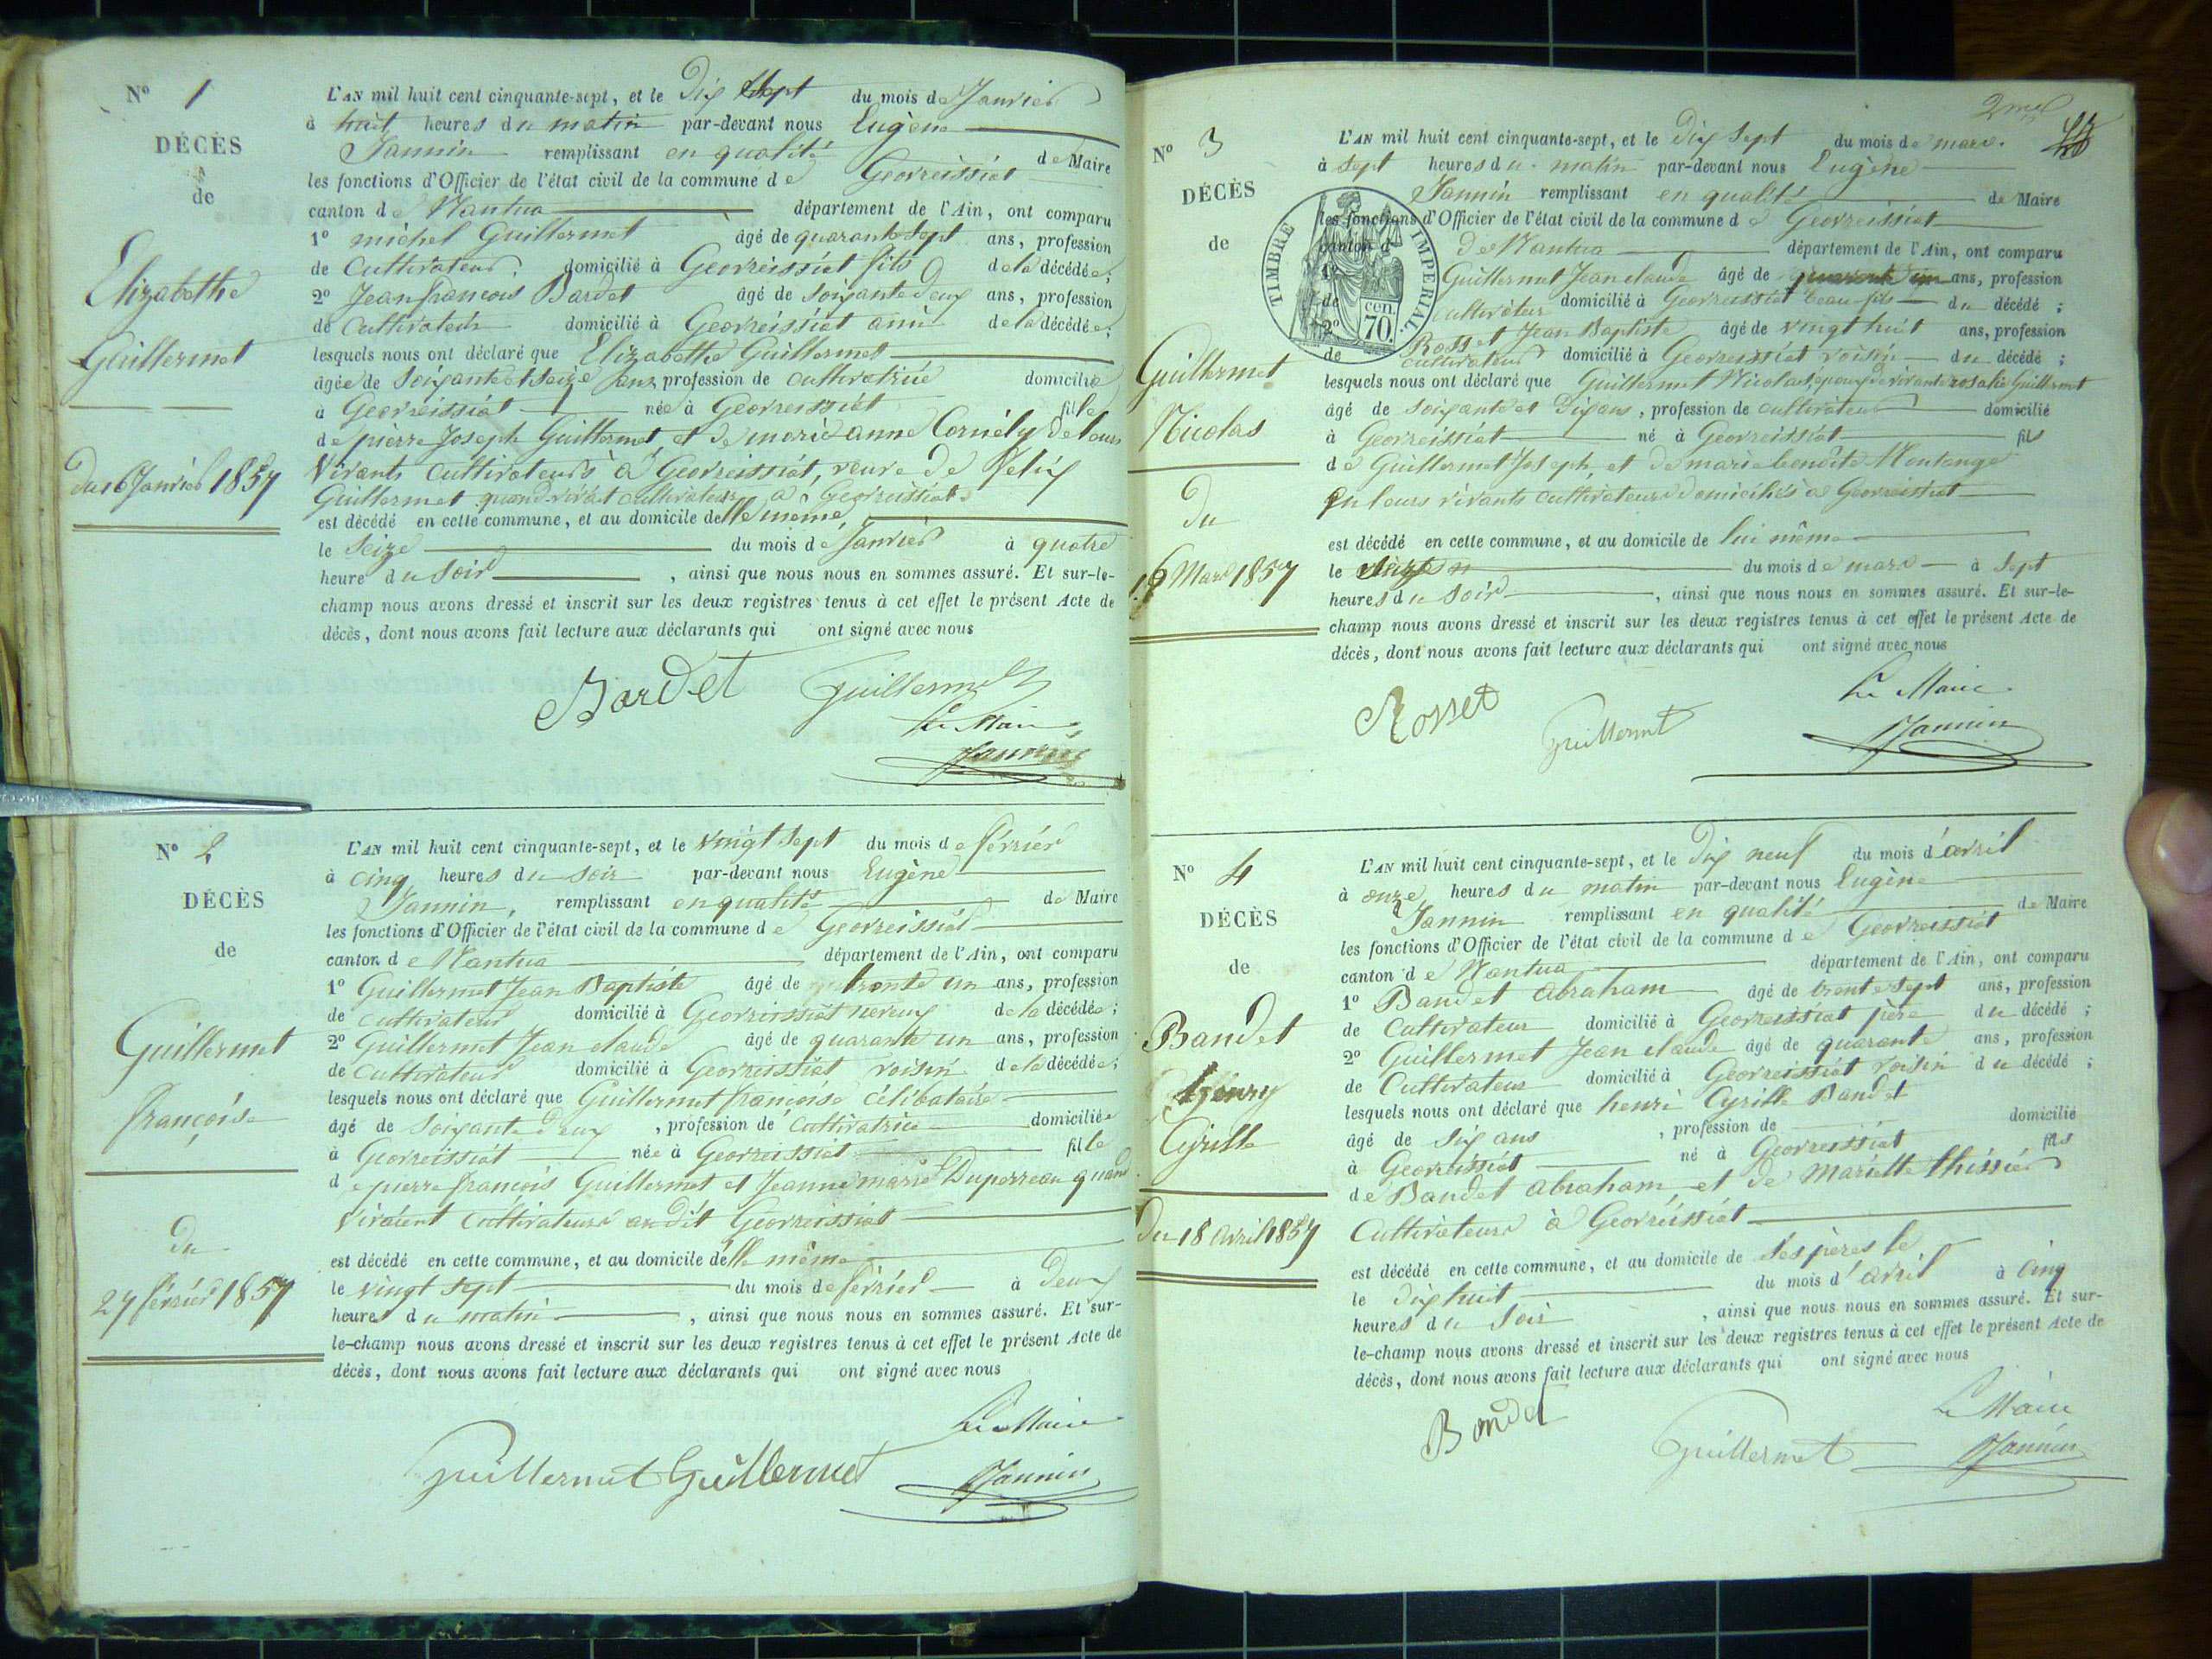 N° 1
DÉCÈS
de
Elizabethe
Guillermet
du 16 Janvier 1857
L'AN mil huit cent cinquante-sept, et le Dix Sept du mois de Janvier
à huit heures du matin par-devant nous Eugène
Jannin remplissant en qualité de Maire
les fonctions d'Officier de l'état civil de la commune de Géovreissiat
canton de Nantua département de l'Ain, ont comparu
1° michel Guillermet âgé de quarante sept ans, profession
de Cultivateur, domicilié à Géovreissiat fils de la décédée;
2° Jean francois Bardet âgé de soixante deux ans, profession
de Cultivateur domicilié à Géovreissiat ami de la décédée;
lesquels nous ont déclaré que Elizabethe Guillermet
âgée de soixante et seize ans, profession de cultivatrice domicilié
à Géovreissiat née à Géovreissiat fille
de pierre Joseph Guillermet, et de marie anne Cornély de leurs
vivants cultivateurs à Géovreissiat, veuve de Félix
Guillermet quand vivait cultivateur à Géovreissiat
est décédé en cette commune, et au domicile d'elle même
le Seize du mois de Janvier à quatre
heure du Soir, ainsi que nous nous en sommes assuré. Et sur-le-
champ nous avons dressé et inscrit sur les deux registres tenus à cet effet le présent Acte de
décès, dont nous avons fait lecture aux déclarants qui ont signé avec nous
Bardet Guillermet
Le Maire
Jannin
N° 2
DÉCÈS
de
Guillermet
françoise
du
27 février 1857
L'AN mil huit cent cinquante-sept, et le vingt sept du mois de février
à cinq heures du soir par-devant nous Eugène
Jannin, remplissant en qualité de Maire
les fonctions d'Officier de l'état civil de la commune de Géovreissiat
canton de Nantua département de l'Ain, ont comparu
1° Guillermet Jean Baptiste âgé de trente un ans, profession
de cultivateur domicilié à Géovreissiat neveux de la décédée;
2° Guillermet Jean claude âgé de quarante un ans, profession
de cultivateur domicilié à Géovreissiat voisin de la décédée;
lesquels nous ont déclaré que Guillermet françoise célibataire
âgé de soixante deux, profession de Cultivatrice domiciliée
à Géovreissiat née à Géovreissiat fille
de pierre françois Guillermet et Jeanne marie Duperreau quand
vivaient Cultivateurs audit Géovreissiat
est décédé en cette commune, et au domicile d'elle même
le vingt sept du mois de février à Deux
heures du matin, ainsi que nous nous en sommes assuré. Et sur-
le-champ nous avons dressé et inscrit sur les deux registres tenus à cet effet le présent Acte de
décès, dont nous avons fait lecture aux déclarants qui ont signé avec nous
Le Maire
Guillermet Guillermet Jannin
2me
N° 3
DÉCÈS
de
Guillermet
Nicolas
Du
16 Mars 1857
TIMBRE IMPERIAL
70 cen.
L'AN mil huit cent cinquante-sept, et le Dix Sept du mois de mars.
à sept heures du matin par-devant nous Eugène
Jannin remplissant en qualité de Maire
les fonctions d'Officier de l'état civil de la commune de Géovreissiat
canton d De Nantua département de l'Ain, ont comparu
1° Guillermet Jean claude âgé de quarante un ans, profession
de cultivateur domicilié à Géovreissiat beau-fils du décédé;
2° Rosset Jean Baptiste âgé de vingt huit ans, profession
de cultivateur domicilié à Géovreissiat voisin du décédé;
lesquels nous ont déclaré que Guillermet Nicolas, époux de vivante rosalie Guillermet
âgé de soixante et Dix ans, profession de cultivateur domicilié
à Géovreissiat né à Géovreissiat fils
de Guillermet Joseph, et de marie benoite Montange
en leurs vivants cultivateurs domiciliés à Géovreissiat
est décédé en cette commune, et au domicile de lui même
le du mois de mars à sept
heures du soir, ainsi que nous nous en sommes assuré. Et sur-le-
champ nous avons dressé et inscrit sur les deux registres tenus à cet effet le présent Acte de
décès, dont nous avons fait lecture aux déclarants qui ont signé avec nous
Le Maire
Rosset Guillermet Jannin
N° 4
DÉCÈS
de
Bandet
henry
Cyrille
Du 18 Avril 1857
L'AN mil huit cent cinquante-sept, et le Dix neuf du mois d'avril
à onze heures du matin par-devant nous Eugène
Jannin remplissant en qualité de Maire
les fonctions d'Officier de l'état civil de la commune de Géovreissiat
canton de Nantua département de l'Ain, ont comparu
1° Bandet Abraham âgé de trente sept ans, profession
de cultivateur domicilié à Géovreissiat père du décédé;
2° Guillermet Jean claude âgé de quarante ans, profession
de Cultivateur domicilié à Géovreissiat voisin du décédé;
lesquels nous ont déclaré que henri Cyrille Bandet
âgé de six ans, profession de domicilié
à Géovreissiat né à Géovreissiat fils
de Bandet Abraham, et de Mariette
Cultivateurs à Géovreissiat
est décédé en cette commune, et au domicile de
le dix huit du mois d'avril à cinq
heures du soir, ainsi que nous nous en sommes assuré. Et sur-
le-champ nous avons dressé et inscrit sur les deux registres tenus à cet effet le présent Acte de
décès, dont nous avons fait lecture aux déclarants qui ont signé avec nous
Le Maire
Bandet Guillermet Jannin